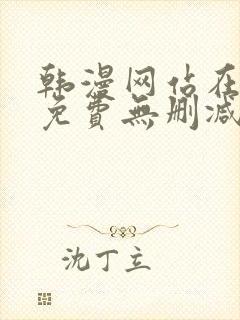 韩漫网站在
免費無删减
沈丁立